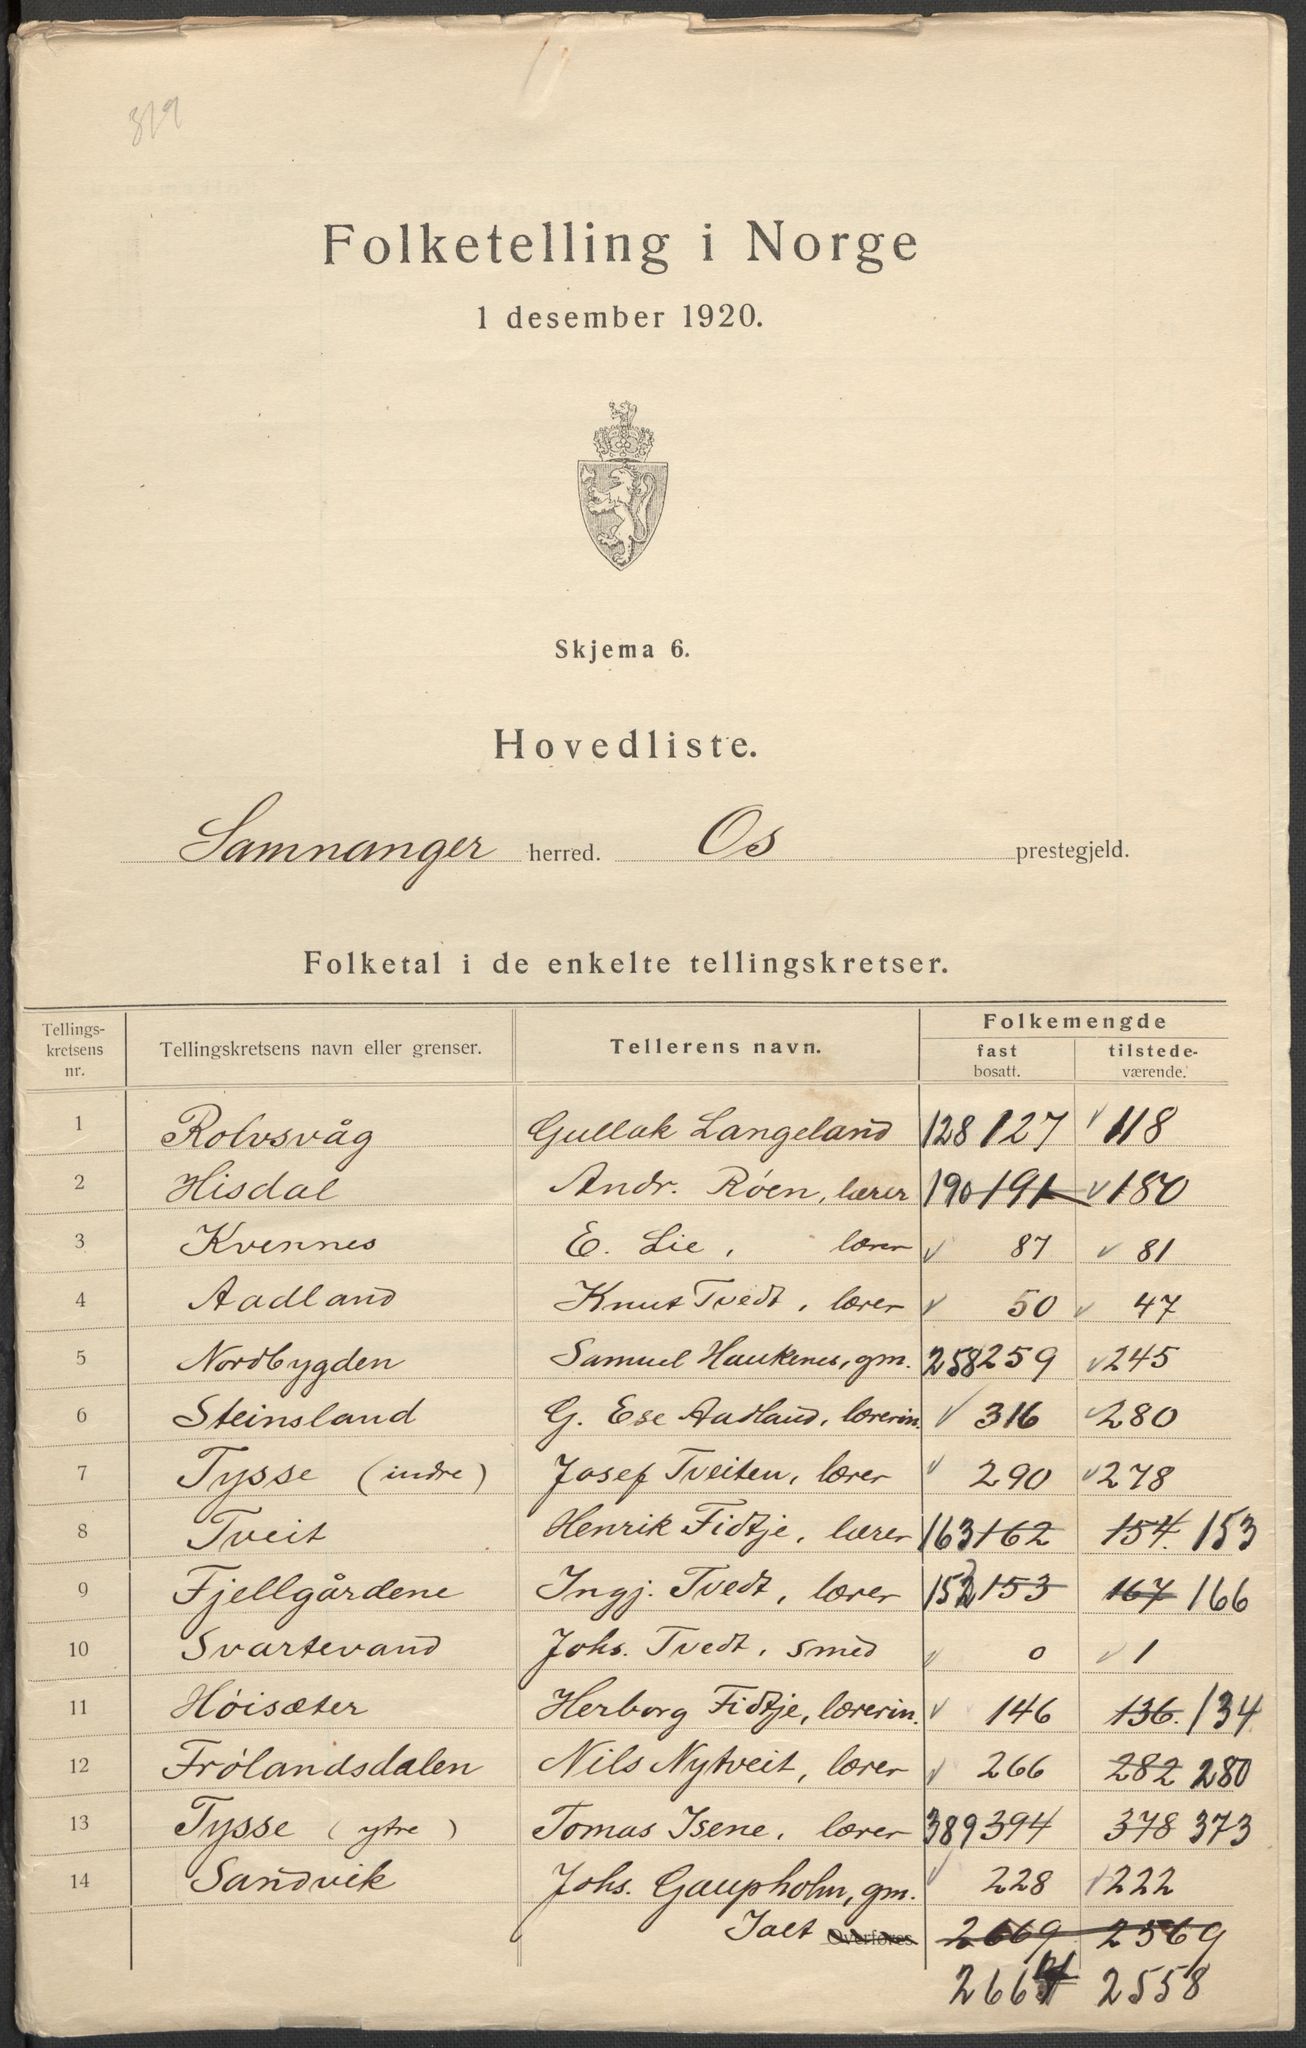 319
Folketelling i Norge
1 desember 1920.
Skjema 6.
Hovedliste.
Samnanger herred. Os prestegjeld.
Folketal i de enkelte tellingskretser.
Tellings-kretsens nr. Tellingskretsens navn eller grenser. Tellerens navn. Folkemengde
fast bosatt. tilstede-værende.
1 Rolvsvåg Gullak Langeland 128 127 ✓ 118
2 Hisdal Andr. Røen, lærer 190 191 ✓ 180
3 Kvennes E. Lie, lærer ✓ 87 ✓ 81
4 Aadland Knut Tvedt, lærer ✓ 50 ✓ 47
5 Nordbygden Samuel Haukenes, gm. 258 259 ✓ 245
6 Steinsland G. Ese Aadland, lærerin. ✓ 316 ✓ 280
7 Tysse (indre) Josef Tveiten, lærer ✓ 290 ✓ 278
8 Tveit Henrik Fidtje, lærer 163 162 154. 153
9 Fjellgårdene Ingj. Tvedt, lærer 152 153 167 166
10 Svartevand Johs. Tvedt, smed ✓ 0 ✓ 1
11 Høisæter Herborg Fidtje, lærerin. ✓ 146 136. 134
12 Frølandsdalen Nils Nytveit, lærer ✓ 266 282 280
13 Tysse (ytre) Tomas Isene, lærer 389 394 378 373
14 Sandvik Johs. Gaupholm, gm. ✓ 228 ✓ 222
Ialt Overføres 2669 2569
2558